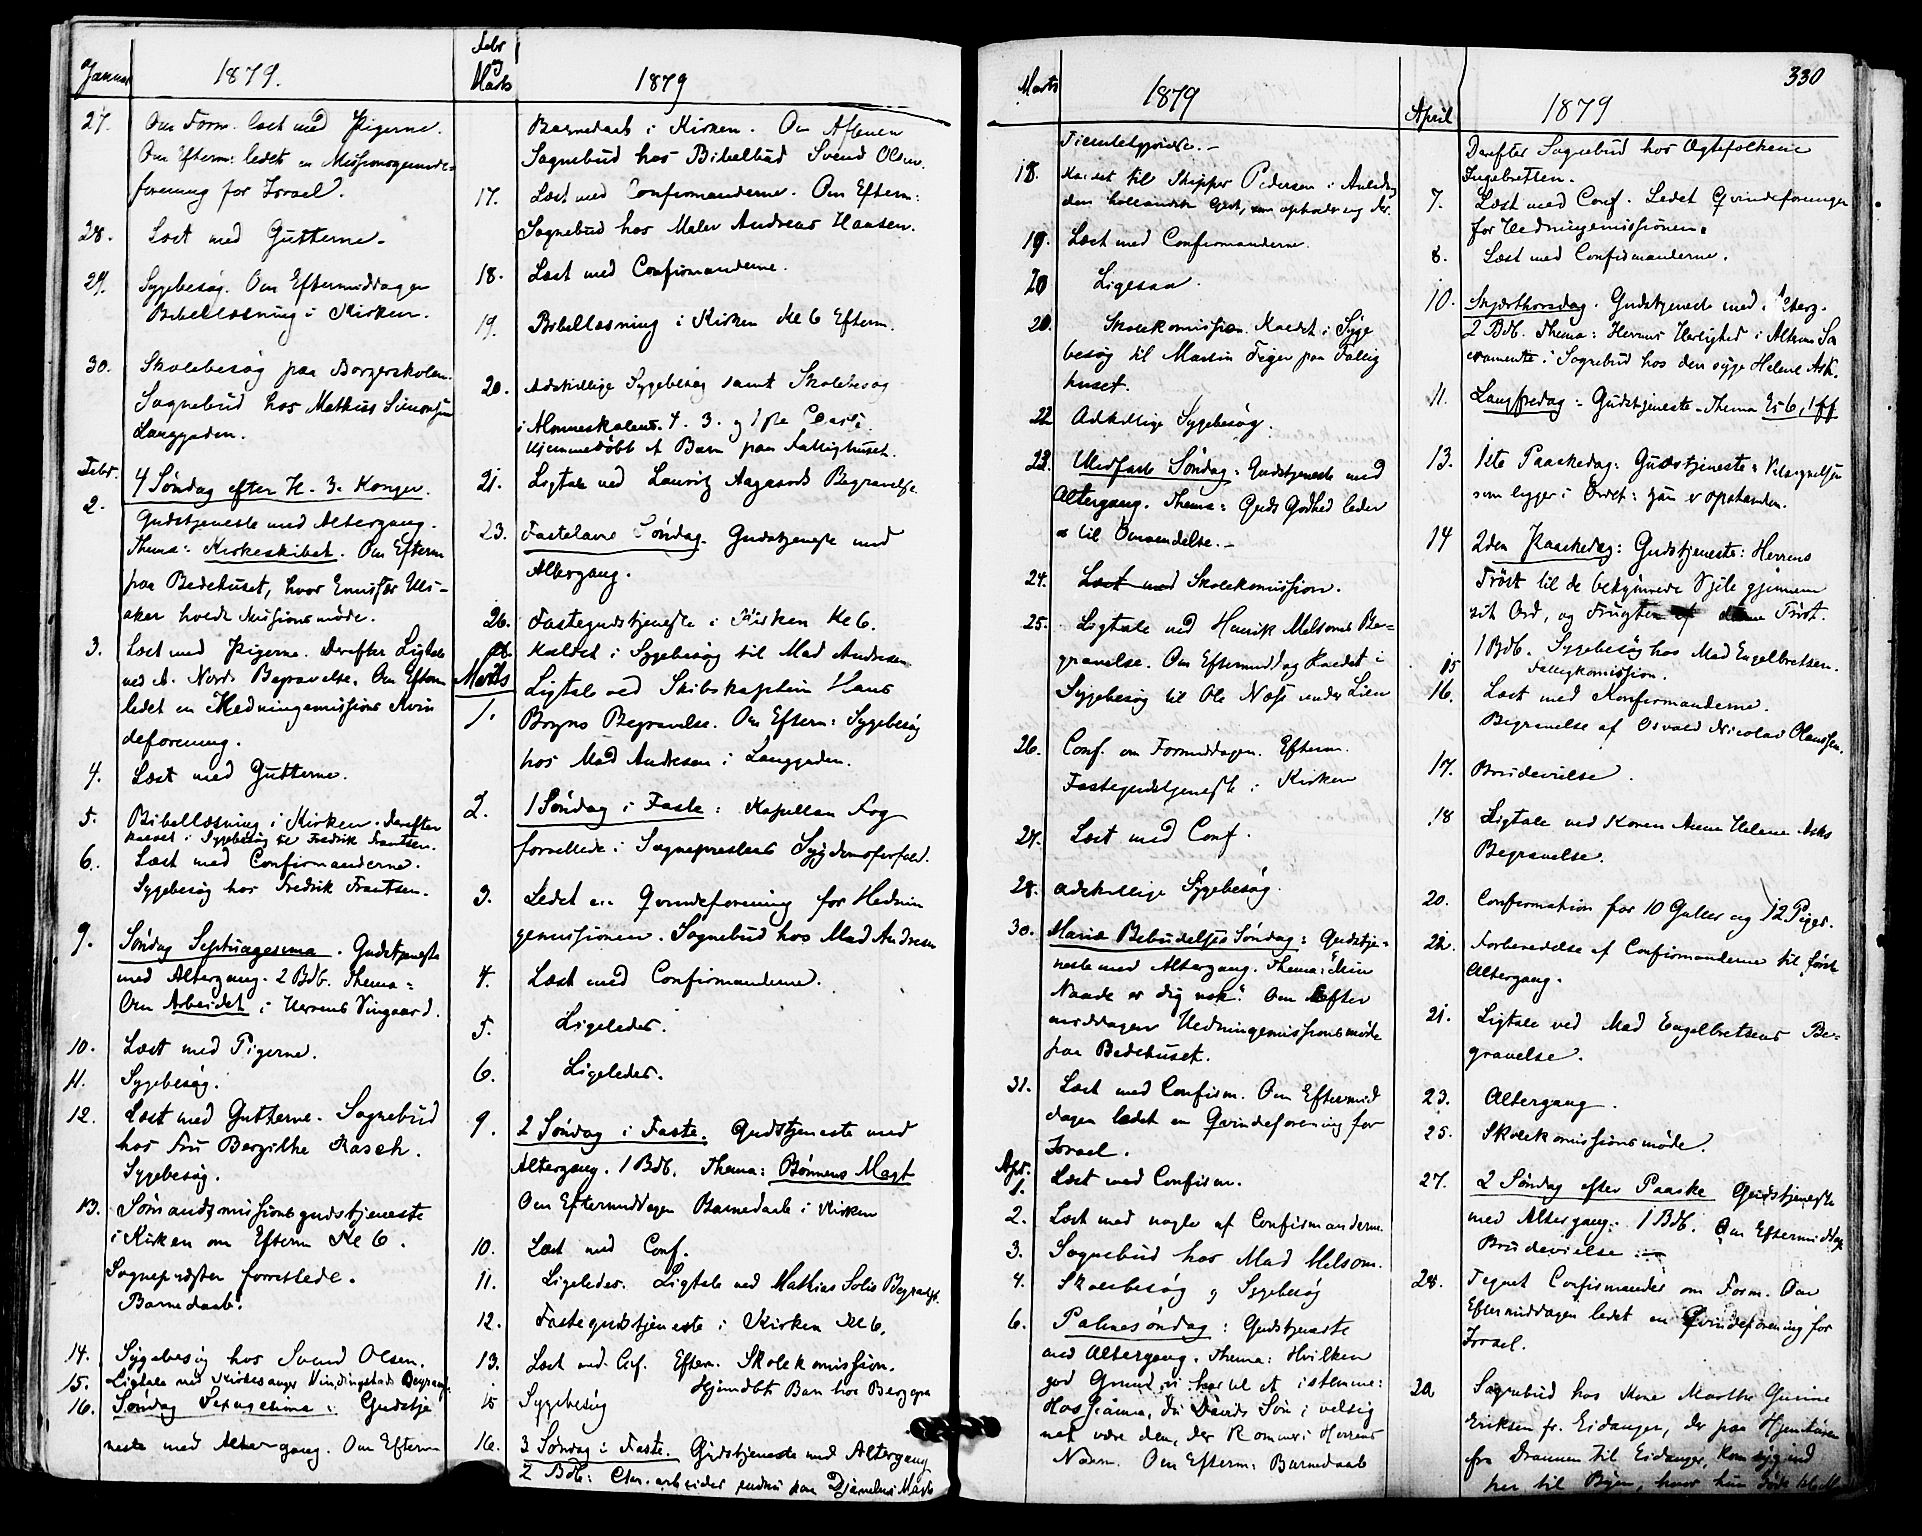 Januar 1879.
27. Om Form. læst med Pigerne.
Om Efterm: ledet en Missionsqvinde-
forening for Israel.
28. Læst med Gutterne.
29. Sygebesøg. Om Eftermiddagen
Bibellæsning i Kirken.
30. Skolebesøg paa Borgerskolen.
Sognebud hos Mathias Simonsen
Langgaden.
Febr. 4 Søndag efter H. 3. Konger.
2. Gudstjeneste med Altergang.
Thema: Kirkeskibet. Om Efterm
paa Bedehuset, hvor
holdt Missionsmøde.
3. Læst med Pigerne. Derefter Ligtale
ved A. Nords Begravelse. Om Efterm
ledet en Hedningemissions Kvin
deforening.
4. Læst med Gutterne.
5. Bibellæsning i Kirken. Derefter
kaldet i Sygebesøg til Fredrik Frantsen.
6. Læst med Confirmanderne.
Sygebesøg hos Fredrik Frantsen.
9. Søndag Septuagesima. Gudstjeneste
med Altergang. 2 Bdb. Thema:
Om Arbeidet i Herrens Vingaard.
10. Læst med Pigerne.
11. Sygebesøg.
12. Læst med Gutterne. Sognebud
hos Fru Bergithe Rasch.
Sygebesøg.
13. Sømandsmissionsgudstjeneste
i Kirken om Efterm Kl 6.
Sognepræsten forrettede.
Barnedaab.
14. Sygebesøg hos Svend Olsen.
15. Ligtale ved Kirkesanger Begravelse
16. Søndag Sexagesima: Gudstje
neste med Altergang. Om Efterm
Febr og Marts 1879
Barnedaab i Kirken. Om Aftenen
Sognebud hos Bibelbud Svend Olsen.
17. Læst med Confirmanderne. Om Efterm:
Sognebud hos Maler Andreas Hansen.
18. Læst med Confirmanderne.
19. Bibellæsning i Kirken Kl 6 Efterm.
20. Adskillige Sygebesøg samt Skolebesøg
i Almueskolens 4. 3. og 1ste Classe.
Hjemmedøbt et Barn paa Fattighuset.
21. Ligtale ved Lauritz Aagaards Begravelse
23. Fastelavns Søndag. Gudstjeneste med
Altergang.
26. Fastegudstjeneste i Kirken Kl 6.
28. Kaldet i Sygebesøg til Mad Andresen
Marts Ligtale ved Skibskaptein Hans
1. Bryns Begravelse. Om Efterm: Sygebesøg
hos Mad Andresen i Langgaden.
2. 1 Søndag i Faste: Kapellan Fog
forrettede i Sognepræstens Sygdomsforfald.
3. Ledet en Qvindeforening for Hednin
gemissionen. Sognebud hos Mad Andresen
4. Læst med Confirmanderne.
5. Ligeledes.
6. Ligeledes.
9. 2 Søndag i Faste. Gudstjeneste med
Altergang. 1 Bdb. Thema: Bønnens Magt
Om Eftermiddagen Barnedaab i Kirken
10. Læst med Conf.
11. Ligeledes. Ligtale ved Mathias Solis Begravelse.
12. Fastegudstjeneste i Kirken Kl 6.
13. Læst med Cnf. Efterm. Skolekomission.
Hjemdbt Barn hos
15 Sygebesøg
16. 3 Søndag i Faste. Gudstjeneste med Altergang
2 Bdb: arbeider endnu paa Djævelens Magt
Marts 1879
18. Kaldet til Skipper Pedersen i
den hollandske
19. Læst med Confirmanderne.
20 Ligesaa.
20. Skolekomission. Kaldet i Syge
besøg til Martin Teiger paa Fattig
huset.
22 Adskillige Sygebesøg.
23. Midfaste Søndag: Gudstjeneste med
Altergang. Thema: Guds Godhed leder
os til Omvendelse.
24. Læst med Skolekomission.
25. Ligtale ved Henrik Melsoms Be-
gravelse. Om Eftermiddag Kaldet i
Sygebesøg til Ole Næss under Lien
26. Conf. om Formiddagen. Efterm.
Fastegudstjeneste i Kirken
27. Læst med Conf.
28. adskillige Sygebesøg.
30. Mariæ Bebudelses Søndag: Gudstje-
neste med Altergang. Thema: "Min
Naade er dig nok". Om Efter
middagen Hedningemissionsmøde
paa Bedehuset.
31. Læst med Confirm. Om Eftermid
dagen ledet en Qvindeforening for
Israel.
Apr. 1. Læst med Confirm.
2. Læst med nogle af Confirmanderne.
3. Sognebud hos Mad Melsom.
4. Skolebesøg og Sygebesøg
6. Palmesøndag: Gudstjeneste
med Altergang. Thema: Hvilken
god Grund vi har til at istemme:
Hosianna, du Davids Søn, velsig
net være den, der Kommer i Herrens
Navn. Om Efterm: Barnedaab
April 1879 330
Derefter Sognebud hos Ægtefolkene
Ingebretsen.
7. Læst med Conf. Ledet Qvindeforeninger
for Hedningemissionen.
8. Læst med Confirmanderne.
10. Skjærthorsdag. Gudstjeneste med Alterg.
2 Bdb. Thema: Herrens Herlighed i Alterens Sa
cramente. Sognebud hos den syge Helene Ask.
11. Langfredag: Gudstjeneste. Thema Es 6, 1 ff
13. 1ste Paaskedag: Gudstjeneste: Velsignelsen
som ligger i Ordet: han er opstanden.
14 2den Paaskedag: Gudstjeneste: Herrens
Trøst til de bekymrede Sjele gjennem
sit Ord, og Frugten af denne Trøst.
1 Bdb. Sygebesøg hos Mad Engelbretsen.
15 Fattigkomission.
16. Læst med Konfirmanderne.
Begravelse af Osvald Nicolai Olaussen.
17. Brudevielse.
18 Ligtale ved Karen Anne Helene Asks
Begravelse.
20. Confirmation for 10 Gutter og 12 Piger.
22. Forberedelse af Confirmanderne til første
Altergang.
21. Ligtale ved Mad Engelbretsens Be-
gravelse.
23. Altergang.
25. Skolekomissionsmøde.
27. 2 Søndag efter Paaske Gudstjeneste
med Altergang. 1 Bdb. Om Eftermiddag
Brudevielse
28. Tegnet Confirmander om Form. Om
Eftermiddagen ledet en Qvindeforening for
Israel.
Sognebud hos Marthe Gurine
Eriksen fr. Eidanger, der paa Hjemturen
fra Drammen til Eidanger, kom syg ind
her til Byen, hvor hun